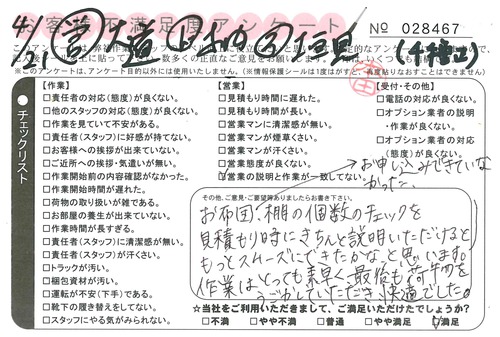 お客様不満足度アンケート
№ 028467
※このアンケートは、アンケート目的以外には使用いたしません。(※情報保護シールは1度はがすと、再度貼りなおすことはできません)
チェックリスト
【作業】
□責任者の対応(態度)が良くない。
□他のスタッフの対応(態度)が良くない。
□作業を見ていて不安がある。
□責任者(スタッフ)に好感が持てない。
□お客様への挨拶が出来ていない。
□ご近所への挨拶・気遣いが無い。
□作業開始前の内容確認がなかった。
□作業開始時間が遅れた。
□荷物の取り扱いが雑である。
□お部屋の養生が出来ていない。
□作業時間が長すぎる。
□責任者(スタッフ)に清潔感が無い。
□責任者(スタッフ)が汗くさい。
□トラックが汚い。
□梱包資材が汚い。
□運転が不安(下手)である。
□靴下の履き替えをしてない。
□スタッフにやる気がみられない。
【営業】
□見積もり時間に遅れた。
□見積もり時間が長い。
□営業マンに清潔感が無い。
□営業マンが煙草くさい。
□営業マンが汗くさい。
□営業態度が良くない。
□営業の説明と作業が一致してない。
【受付・その他】
□電話の対応が良くない。
□オプション業者の説明・作業が良くない。
□オプション業者の対応(態度)が良くない。
お申し込みできていなかった。
その他、ご意見・ご要望等ありましたらお書き下さい。
お布団、棚の個数のチェックを
見積もり時にきちんと説明いただけると
もっとスムーズにできたかな、と思います。
作業はとっても素早く、最後も荷物を
うごかしていただき快適でした。
☆当社をご利用いただきまして、ご満足いただけたでしょうか?
□不満 □やや不満 □普通 □やや満足 ☑満足